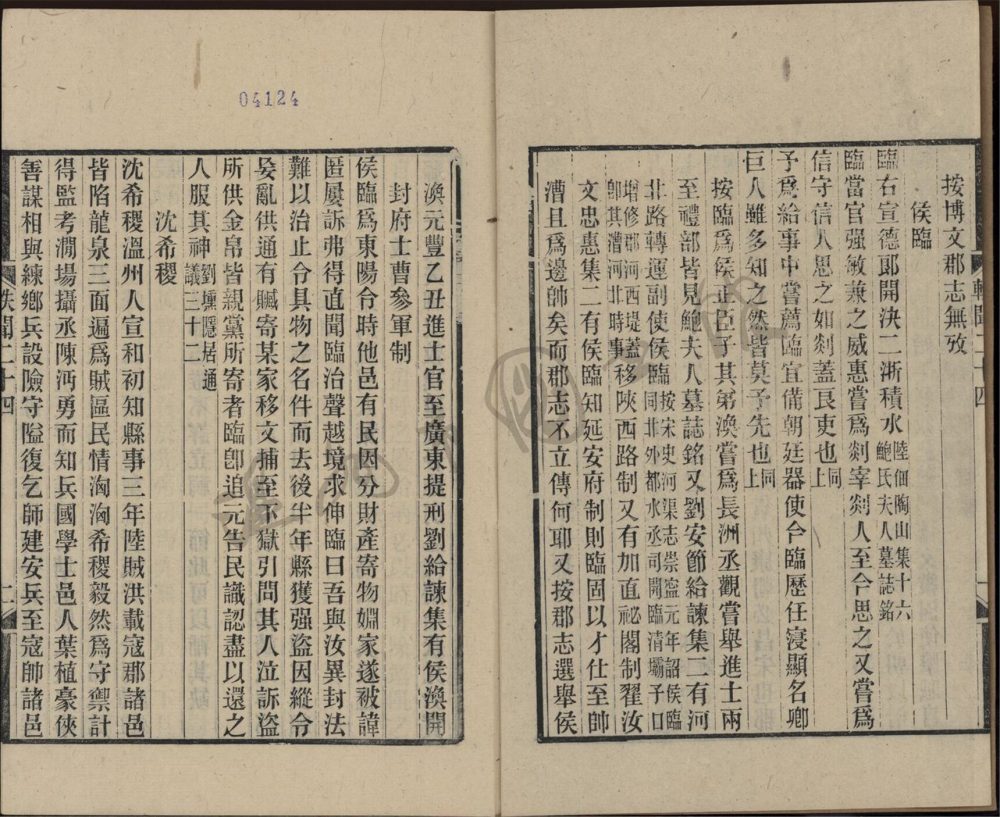 按博文郡志無攷
侯臨
臨右宣德郎開決二浙積水陸佃陶山集十六
鮑氏夫人墓誌銘
臨當官强敏兼之威惠嘗爲剡宰剡人至今思之又嘗爲
信守信人思之如剡蓋良吏也同
上
予爲給事中嘗薦臨宜備朝廷器使今臨歷任寖顯名卿
巨人雖多知之然皆莫予先也同
上
按臨爲侯正臣子其弟渙嘗爲長洲丞觀嘗舉進士兩
至禮部皆見鮑夫人墓誌銘又劉安節給諫集二有河
北路轉運副使侯臨按宋史河渠志崇寧元年詔侯臨
同北外都水丞司開臨清壩子口
增修鄃河西堤蓋
卽其漕河北時事移陜西路制又有加直祕閣制翟汝
文忠惠集二有侯臨知延安府制則臨固以才仕至帥
漕且爲邊帥矣而郡志不立傳何耶又按郡志選舉侯
04124
渙元豐乙丑進士官至廣東提刑劉給諫集有侯渙開
封府士曹參軍制
侯臨爲東陽令時他邑有民因分財產寄物婣家遂被諱
匿屢訴弗得直聞臨治聲越境求伸臨曰吾與汝異封法
難以治止令具物之名件而去後半年縣獲强盜因縱令
妄亂供通有贓寄某家移文捕至下獄引問其人泣訴盜
所供金帛皆親黨所寄者臨卽追元告民識認盡以還之
人服其神劉壎隱居通
議三十二
沈希稷
沈希稷溫州人宣和初知縣事三年陸賊洪載寇郡諸邑
皆陷龍泉三面遍爲賊區民情洶洶希稷毅然爲守禦計
得監考澗場攝丞陳沔勇而知兵國學士邑人葉植豪俠
善謀相與練鄉兵設險守隘復乞師建安兵至寇帥諸邑
軼聞二十四
二